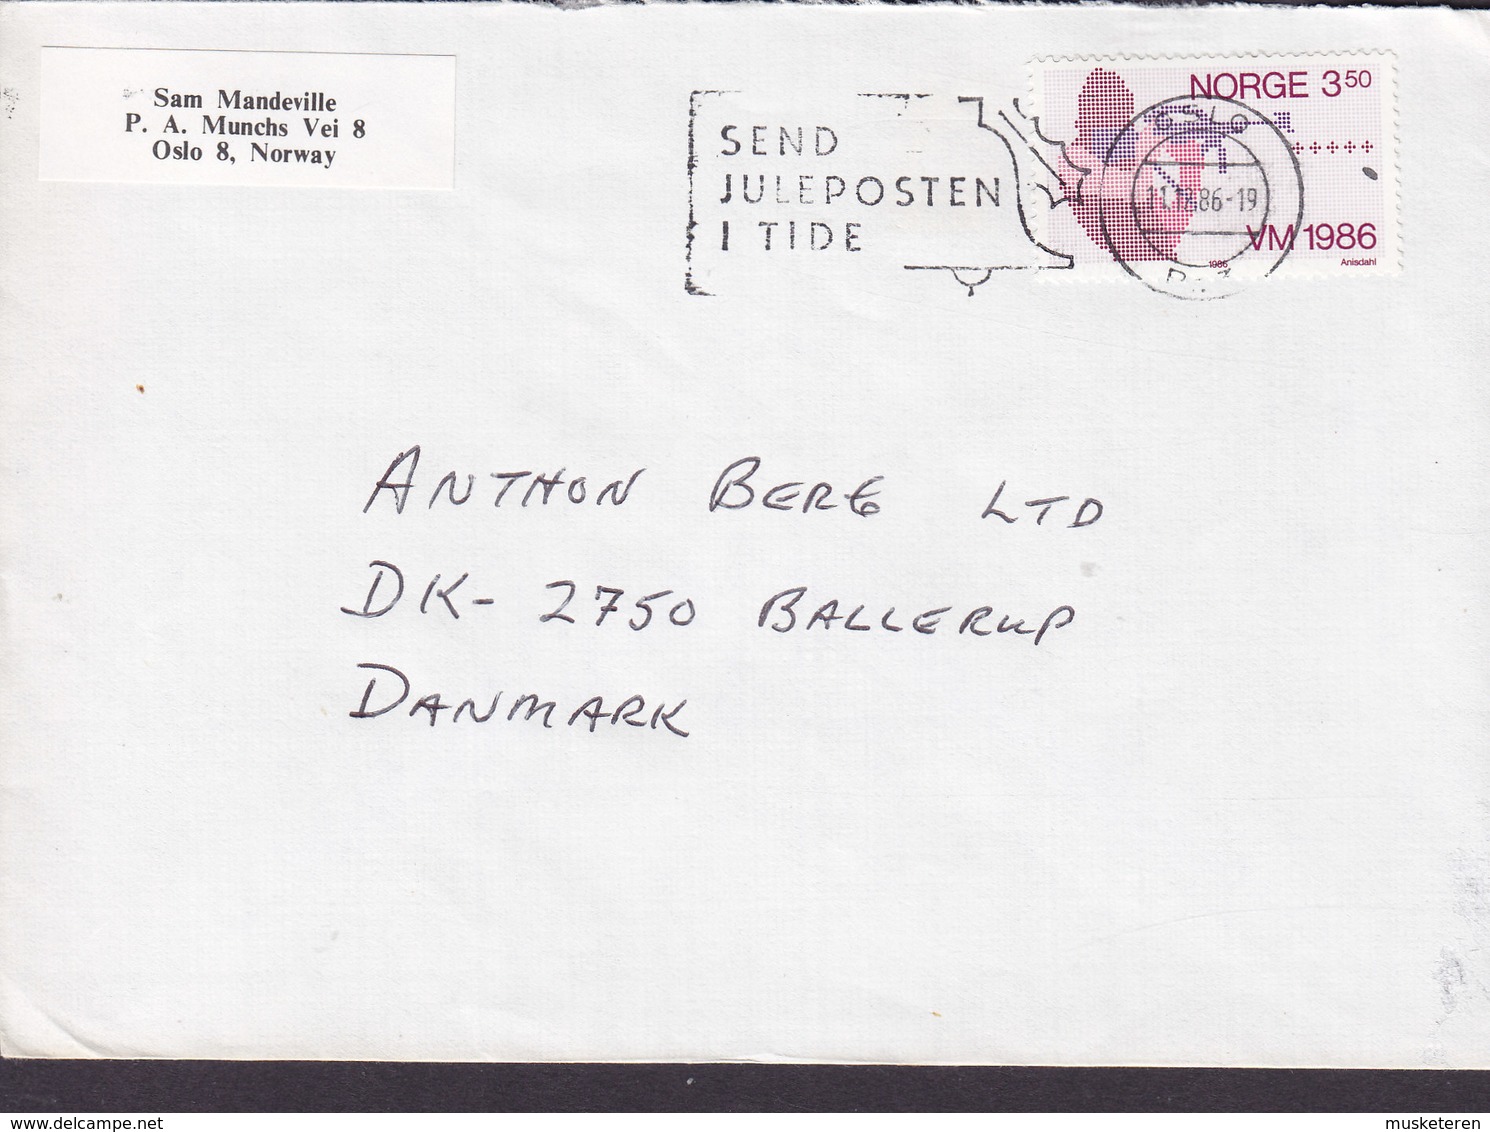 Sam Mandeville
P. A. Munchs Vei 8
Oslo 8, Norway
SEND
JULEPOSTEN
I TIDE
NORGE 3 50
OSLO
11.12.86-19
VM 1986
1986
Anisdahl
ANTHON BERG LTD
DK- 2750 BALLERUP
DANMARK
musketeren